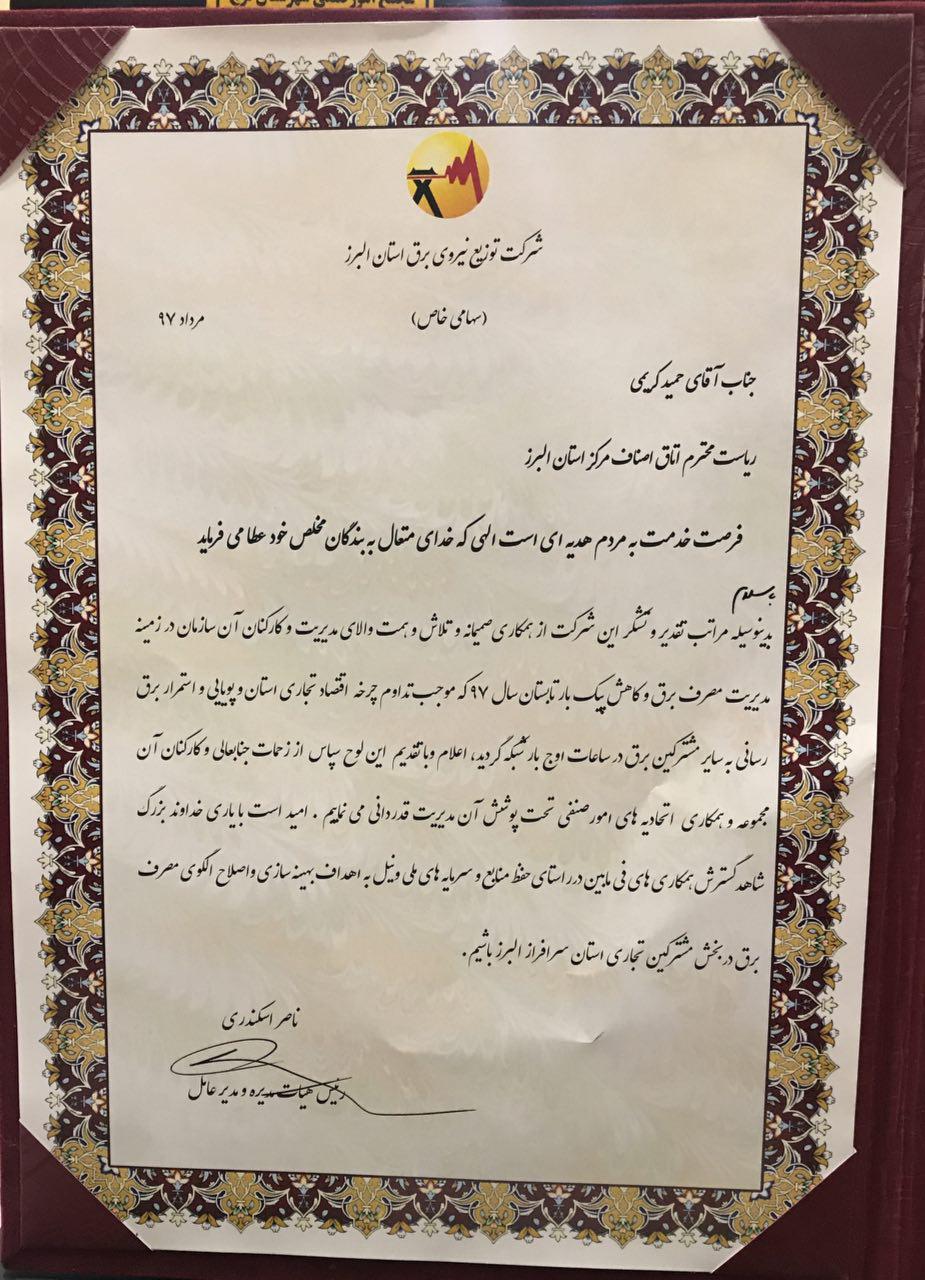 شرکت توزیع نیروی برق استان البرز
(سهامی خاص)
مرداد ۹۷
جناب آقای حمید کریمی
ریاست محترم اتاق اصناف مرکز استان البرز
فرصت خدمت به مردم هدیه ای است الهی که خدای متعال به بندگان مخلص خود عطا می فرماید
بدینوسیله مراتب تقدیر و تشکر این شرکت از همکاری صمیمانه و تلاش و همت والای مدیریت و کارکنان آن سازمان در زمینه
مدیریت مصرف برق و کاهش پیک بار تابستان سال ۹۷ که موجب تداوم چرخه اقتصاد تجاری استان و پویایی و استمرار برق
رسانی به سایر مشترکین برق در ساعات اوج بار شبکه گردید، اعلام و با تقدیم این لوح سپاس از زحمات جنابعالی و کارکنان آن
مجموعه و همکاری اتحادیه های امور صنفی تحت پوشش آن مدیریت قدردانی می نماییم . امید است با یاری خداوند بزرگ
شاهد گسترش همکاری های فی مابین در راستای حفظ منابع و سرمایه های ملی و نیل به اهداف بهینه سازی و اصلاح الگوی مصرف
برق در بخش مشترکین تجاری استان سرافراز البرز باشیم.
ناصر اسکندری
رئیس هیات مدیره و مدیر عامل